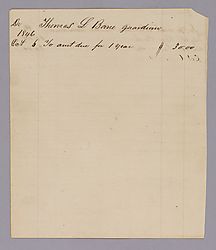 Dr Thomas L Bane guardian
1846
Oct 5 To amt due for 1 year $ 30.00